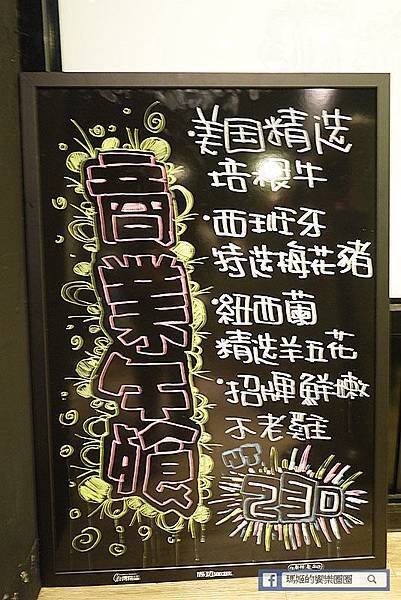 商業午餐
·美国精选
培根牛
·西班牙
特选梅花豬
·紐西蘭
精选羊五花
·招牌鮮嫩
不老雞
NT
230
瑪姬的饗樂園圈